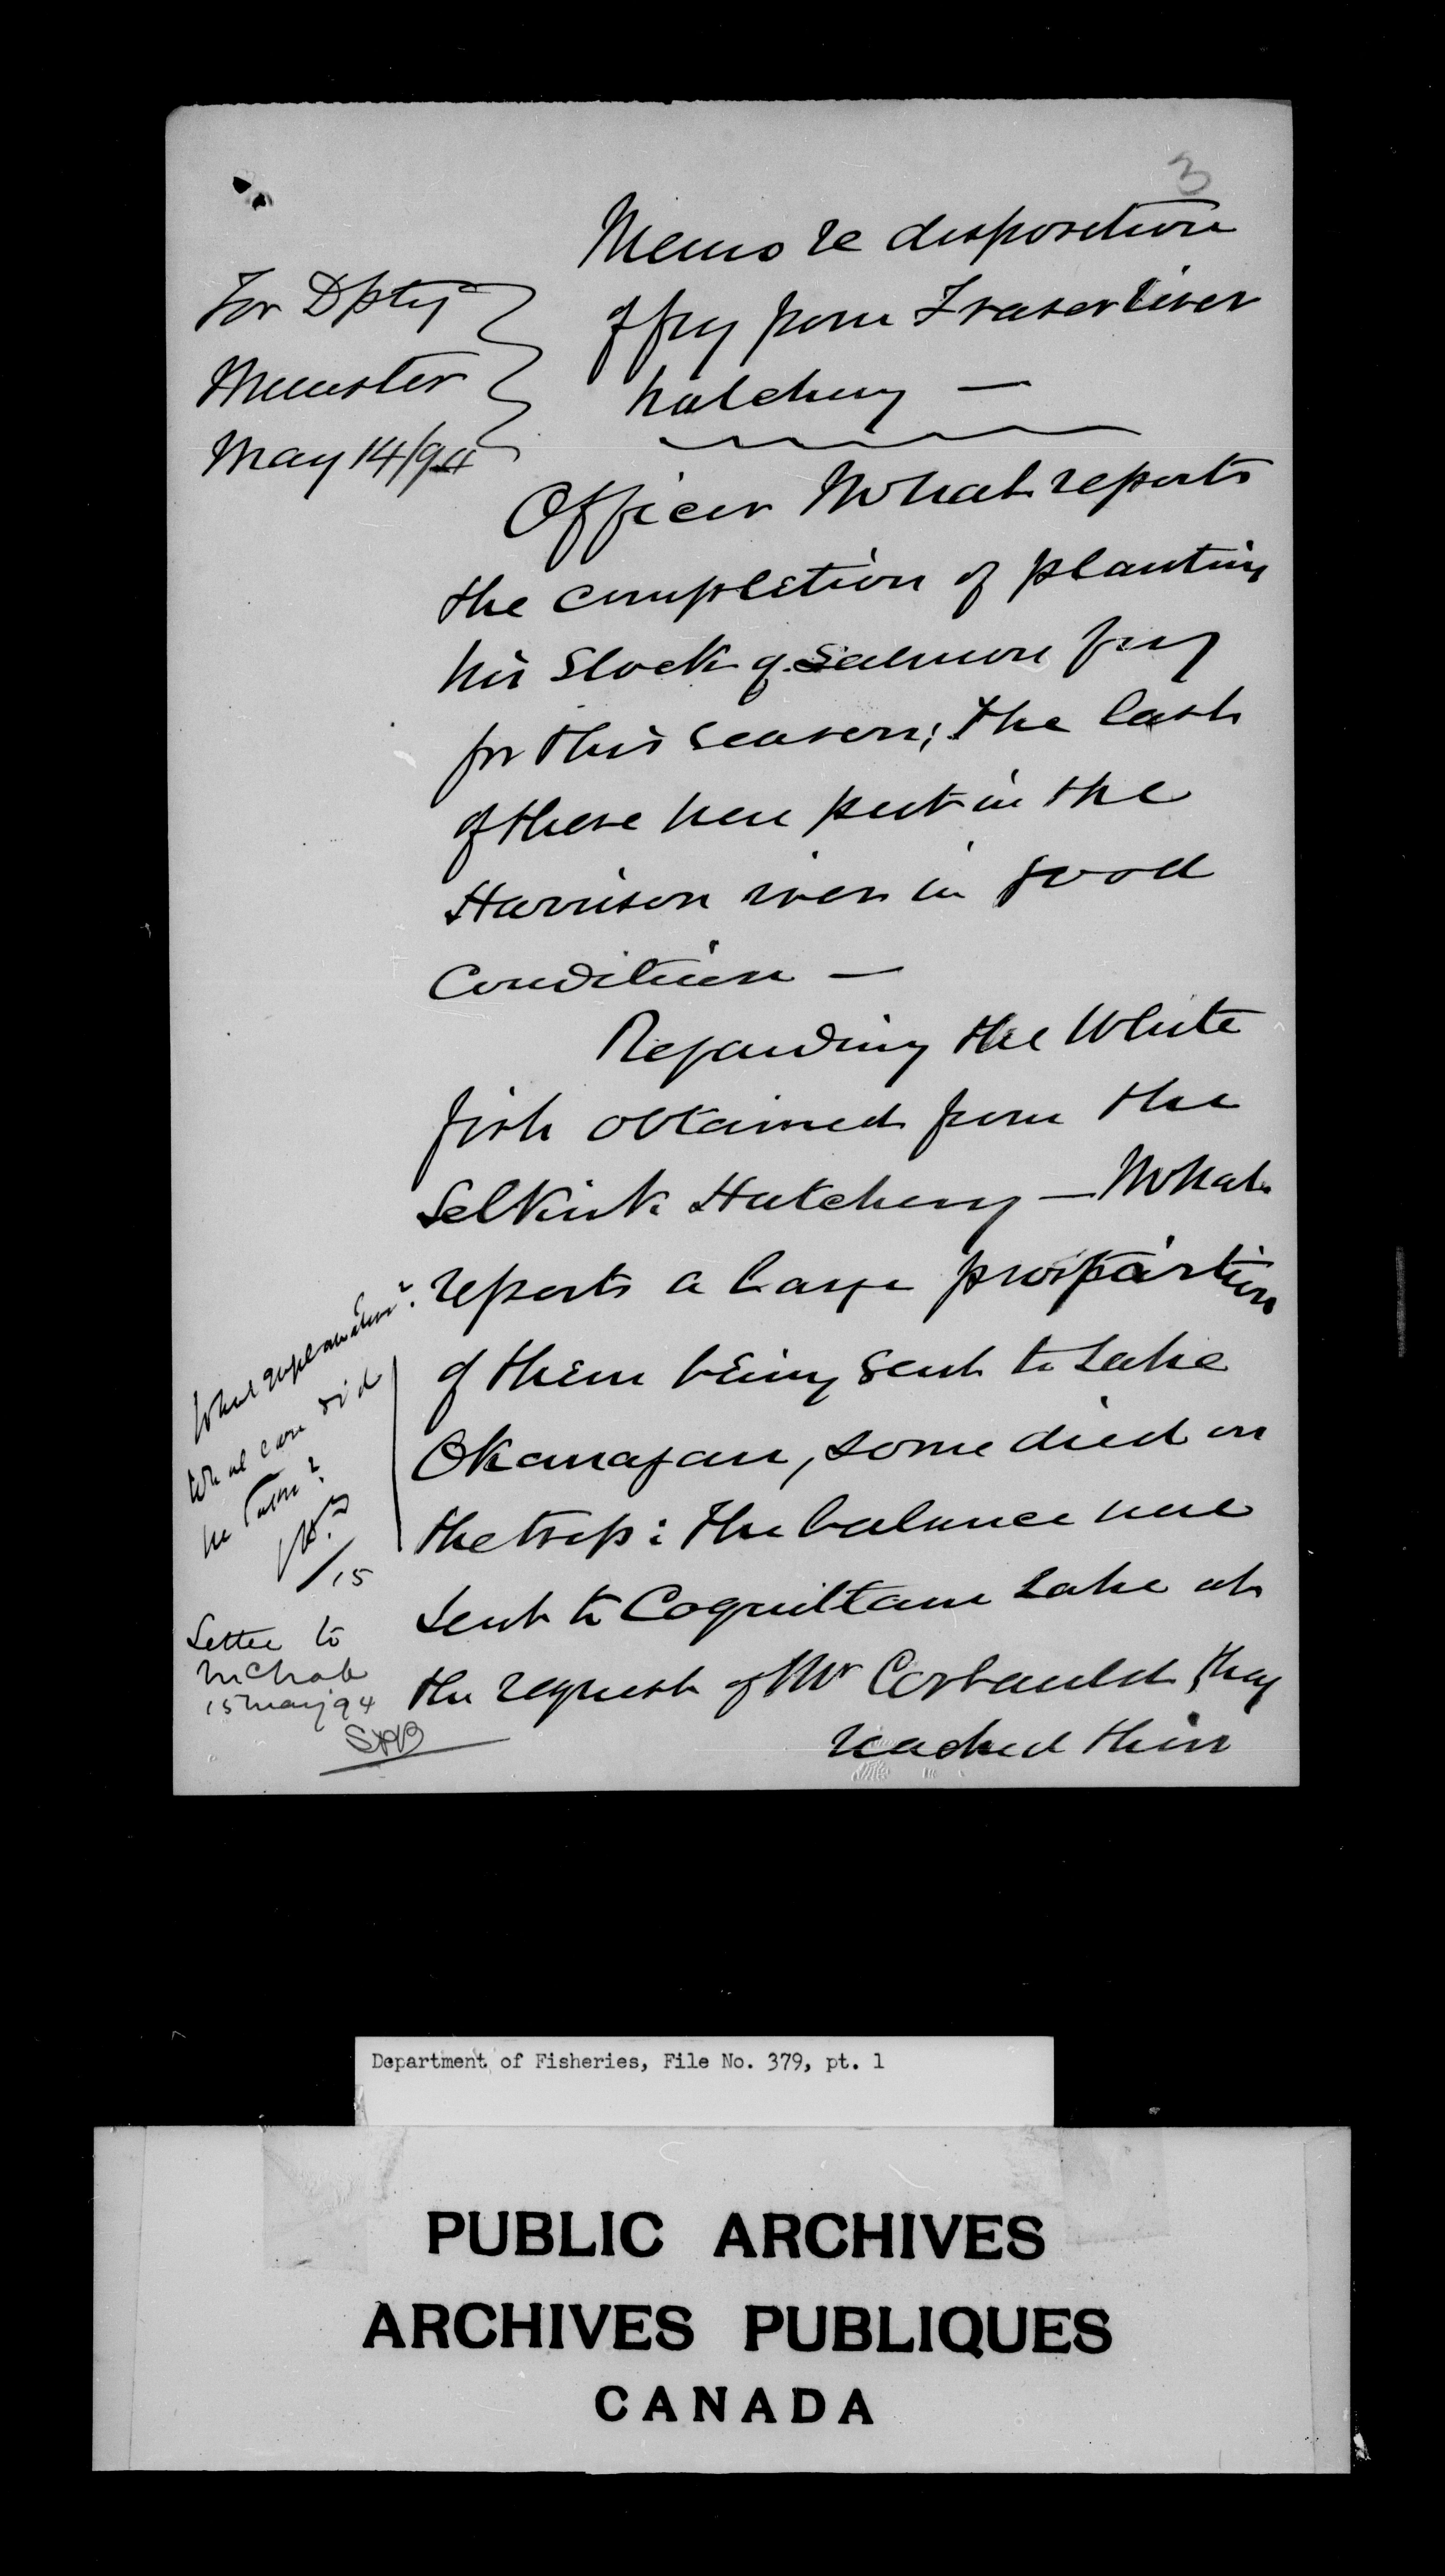 3
Memo re disposition
of fry from Fraser River
hatchery —
For Dpty
Minister
May 14/94
Officer McNab reports
the completion of planting
his stock of Salmon fry
for this season; the last
of these were put in the
Harrison river in good
Condition —
Regarding the White
fish obtained from the
Selkirk Hatchery — McNab
reports a large proportion
of them being sent to Lake
Okanagan, some died on
the trip: the balance were
sent to Coquiltam Lake at
the request of Mr Corbould, they
reached their
What explanation?
What care did
he take?
/15
Letter to
McNab
15 May 94
SPB
Department of Fisheries, File No. 379, pt. 1
PUBLIC ARCHIVES
ARCHIVES PUBLIQUES
CANADA